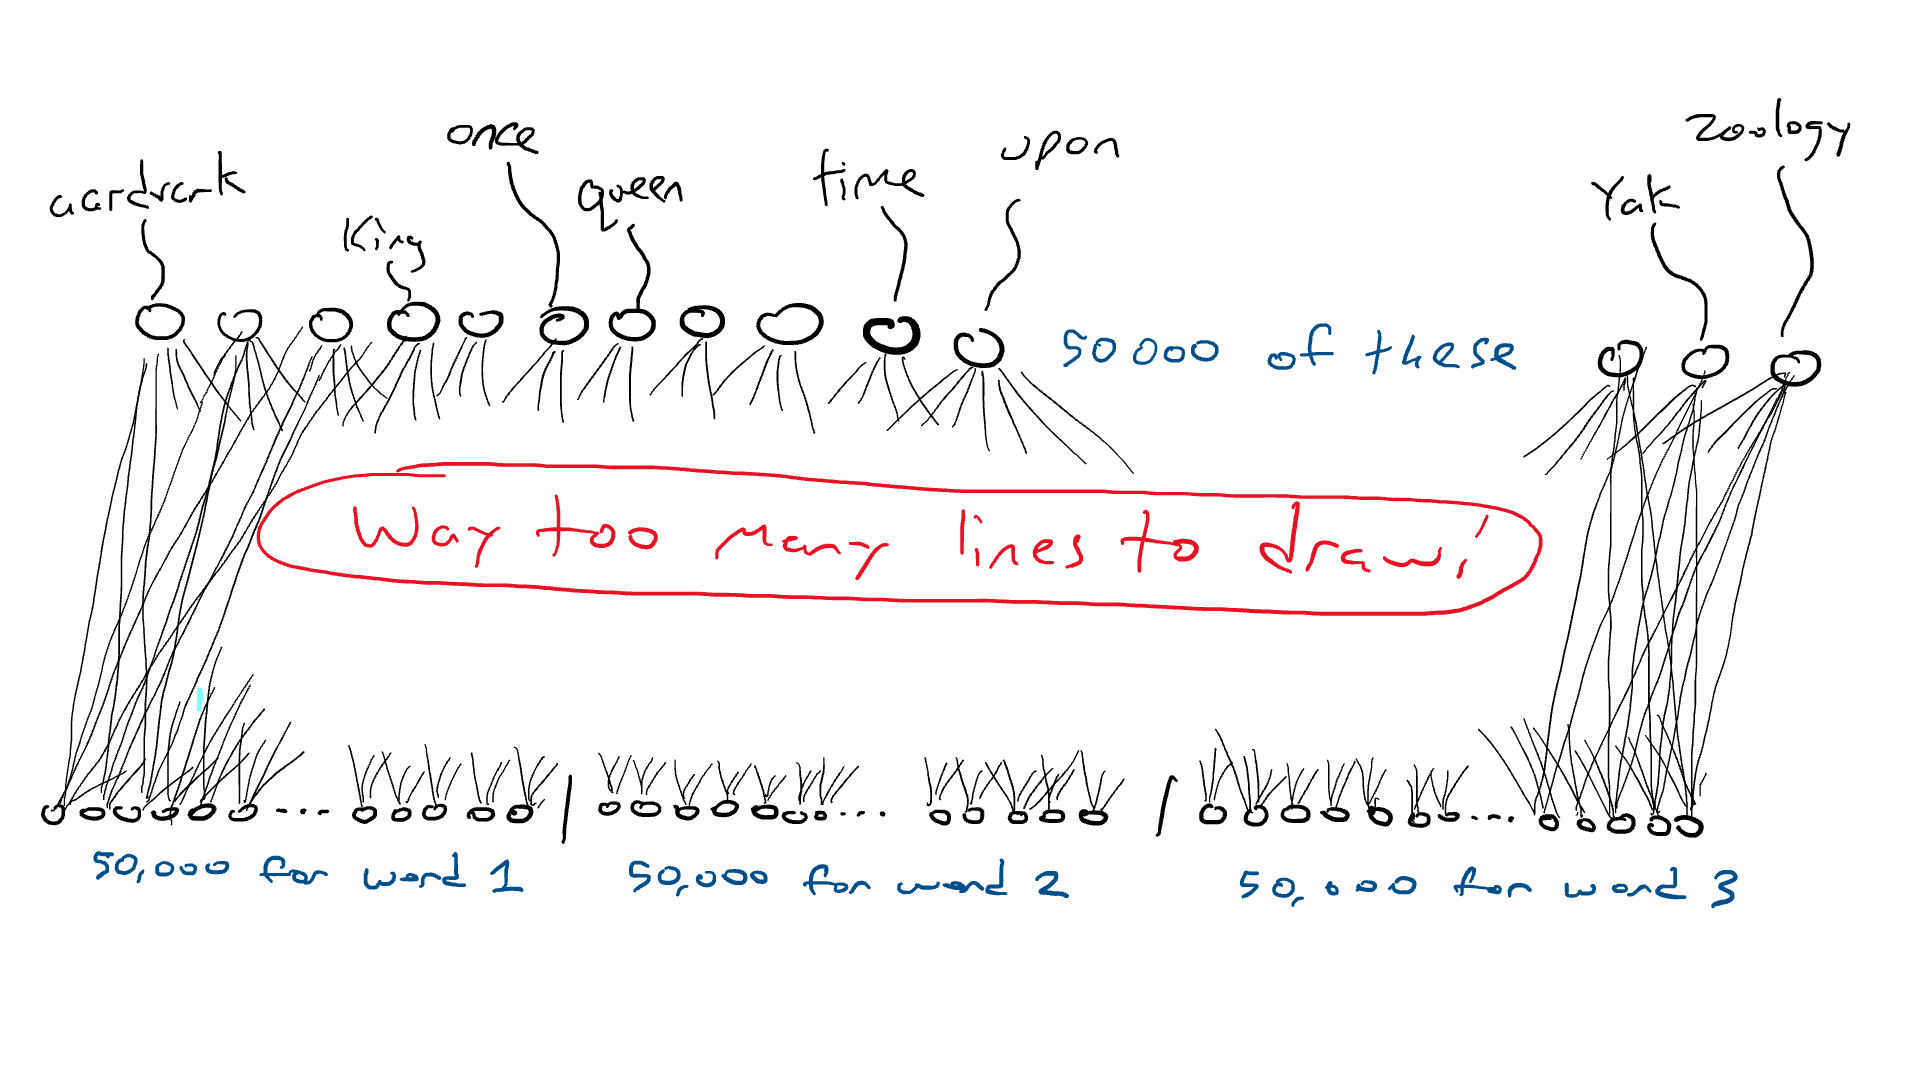 aardvark
King
once
queen
time
upon
Yak
zoology
50000 of these
Way too many lines to draw!
50,000 for word 1
50,000 for word 2
50,000 for word 3